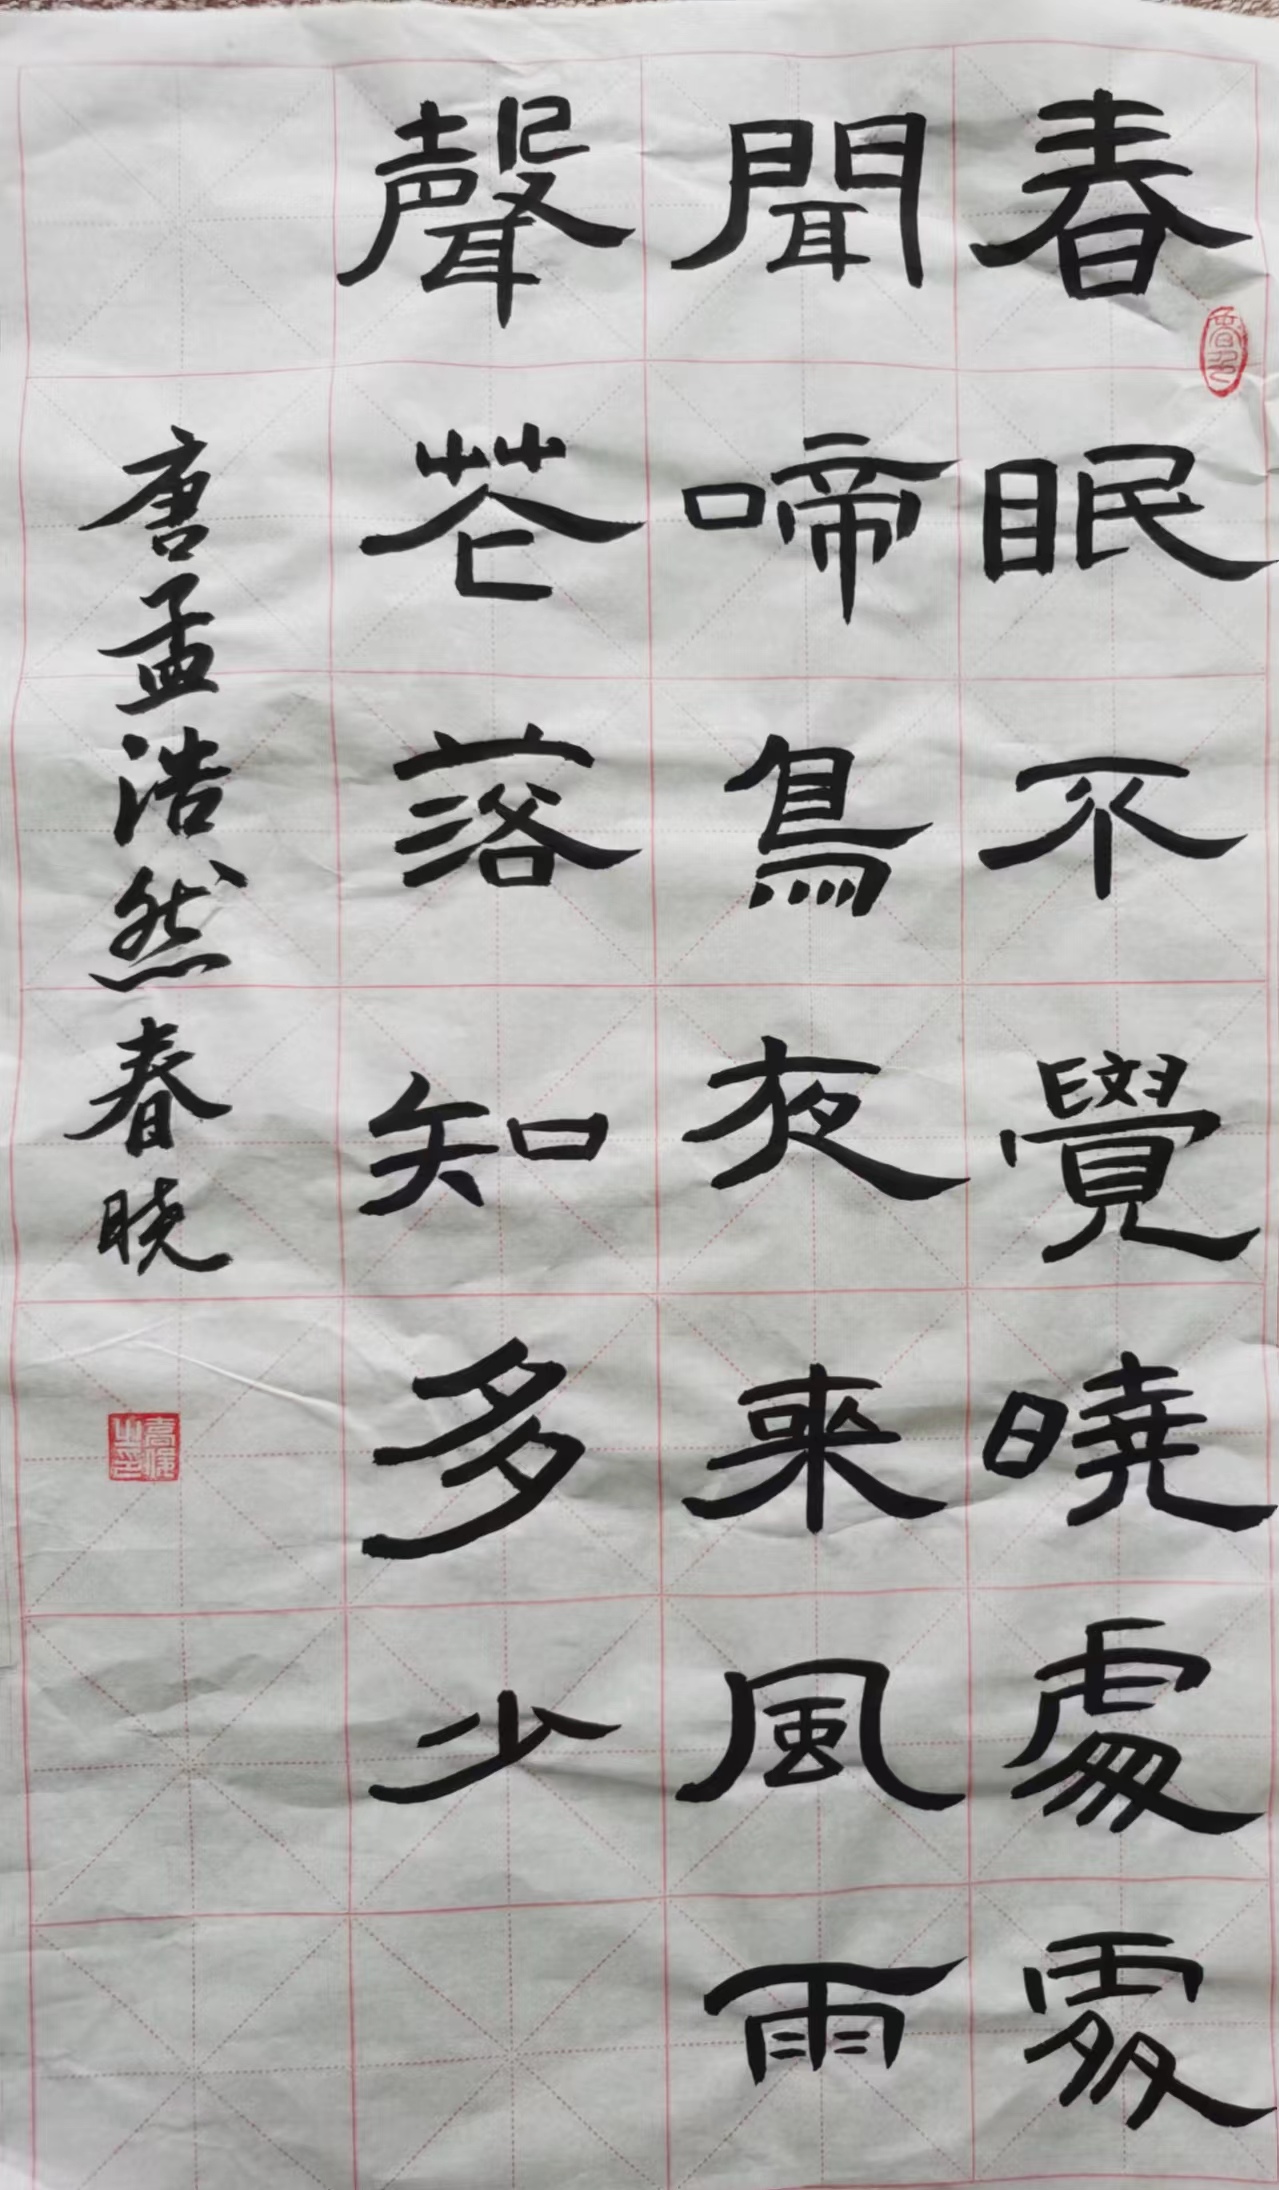 春眠不覺曉處處
聞啼鳥夜來風雨
聲花落知多少
唐孟浩然春晓